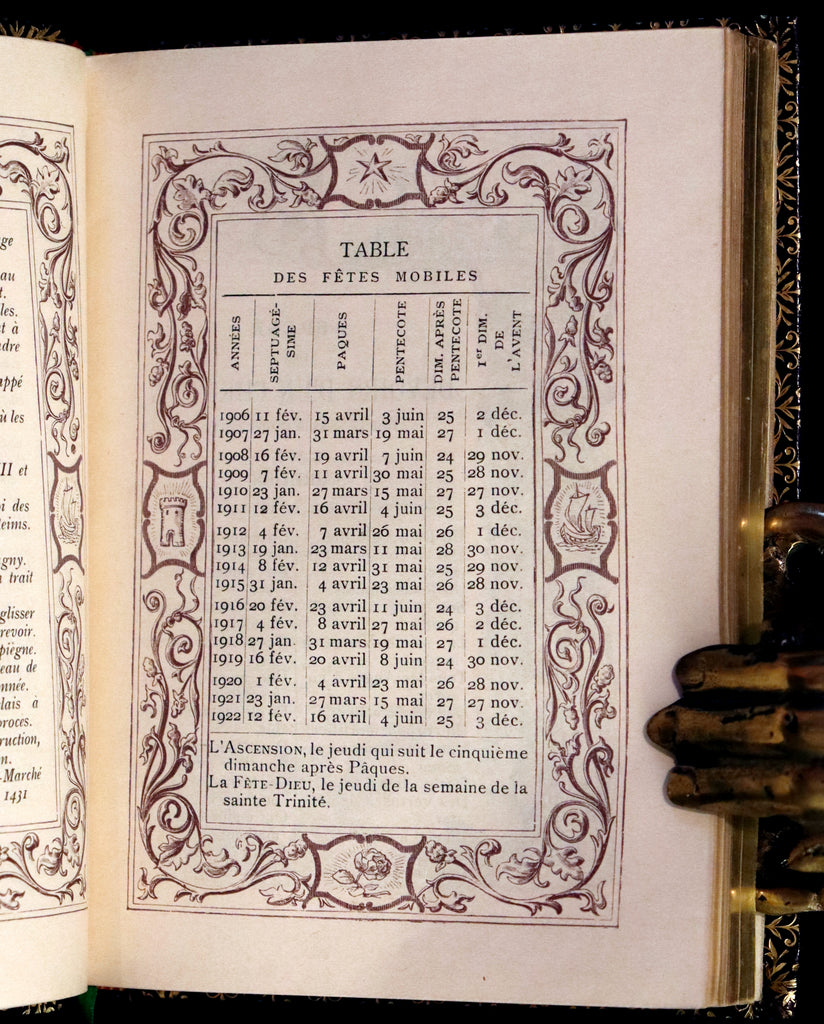 ge
au
t.
les.
t à
dre
appé
ù les
VII et
oi des
Reims.
gny.
trait
glisser
revoir.
piègne.
eau de
nnée.
lais à
roces.
ruction,
n.
-Marché
1431
TABLE
DES FÊTES MOBILES
ANNÉES SEPTUAGÉ-SIME PAQUES PENTECOTE DIM. APRÈS PENTECOTE 1er DIM. DE L'AVENT
1906 11 fév. 15 avril 3 juin 25 2 déc.
1907 27 jan. 31 mars 19 mai 27 1 déc.
1908 16 fév. 19 avril 7 juin 24 29 nov.
1909 7 fév. 11 avril 30 mai 25 28 nov.
1910 23 jan. 27 mars 15 mai 27 27 nov.
1911 12 fév. 16 avril 4 juin 25 3 déc.
1912 4 fév. 7 avril 26 mai 26 1 déc.
1913 19 jan. 23 mars 11 mai 28 30 nov.
1914 8 fév. 12 avril 31 mai 25 29 nov.
1915 31 jan. 4 avril 23 mai 26 28 nov.
1916 20 fév. 23 avril 11 juin 24 3 déc.
1917 4 fév. 8 avril 27 mai 26 2 déc.
1918 27 jan. 31 mars 19 mai 27 1 déc.
1919 16 fév. 20 avril 8 juin 24 30 nov.
1920 1 fév. 4 avril 23 mai 26 28 nov.
1921 23 jan. 27 mars 15 mai 27 27 nov.
1922 12 fév. 16 avril 4 juin 25 3 déc.
L'ASCENSION, le jeudi qui suit le cinquième
dimanche après Pâques.
La FÊTE-DIEU, le jeudi de la semaine de la
sainte Trinité.